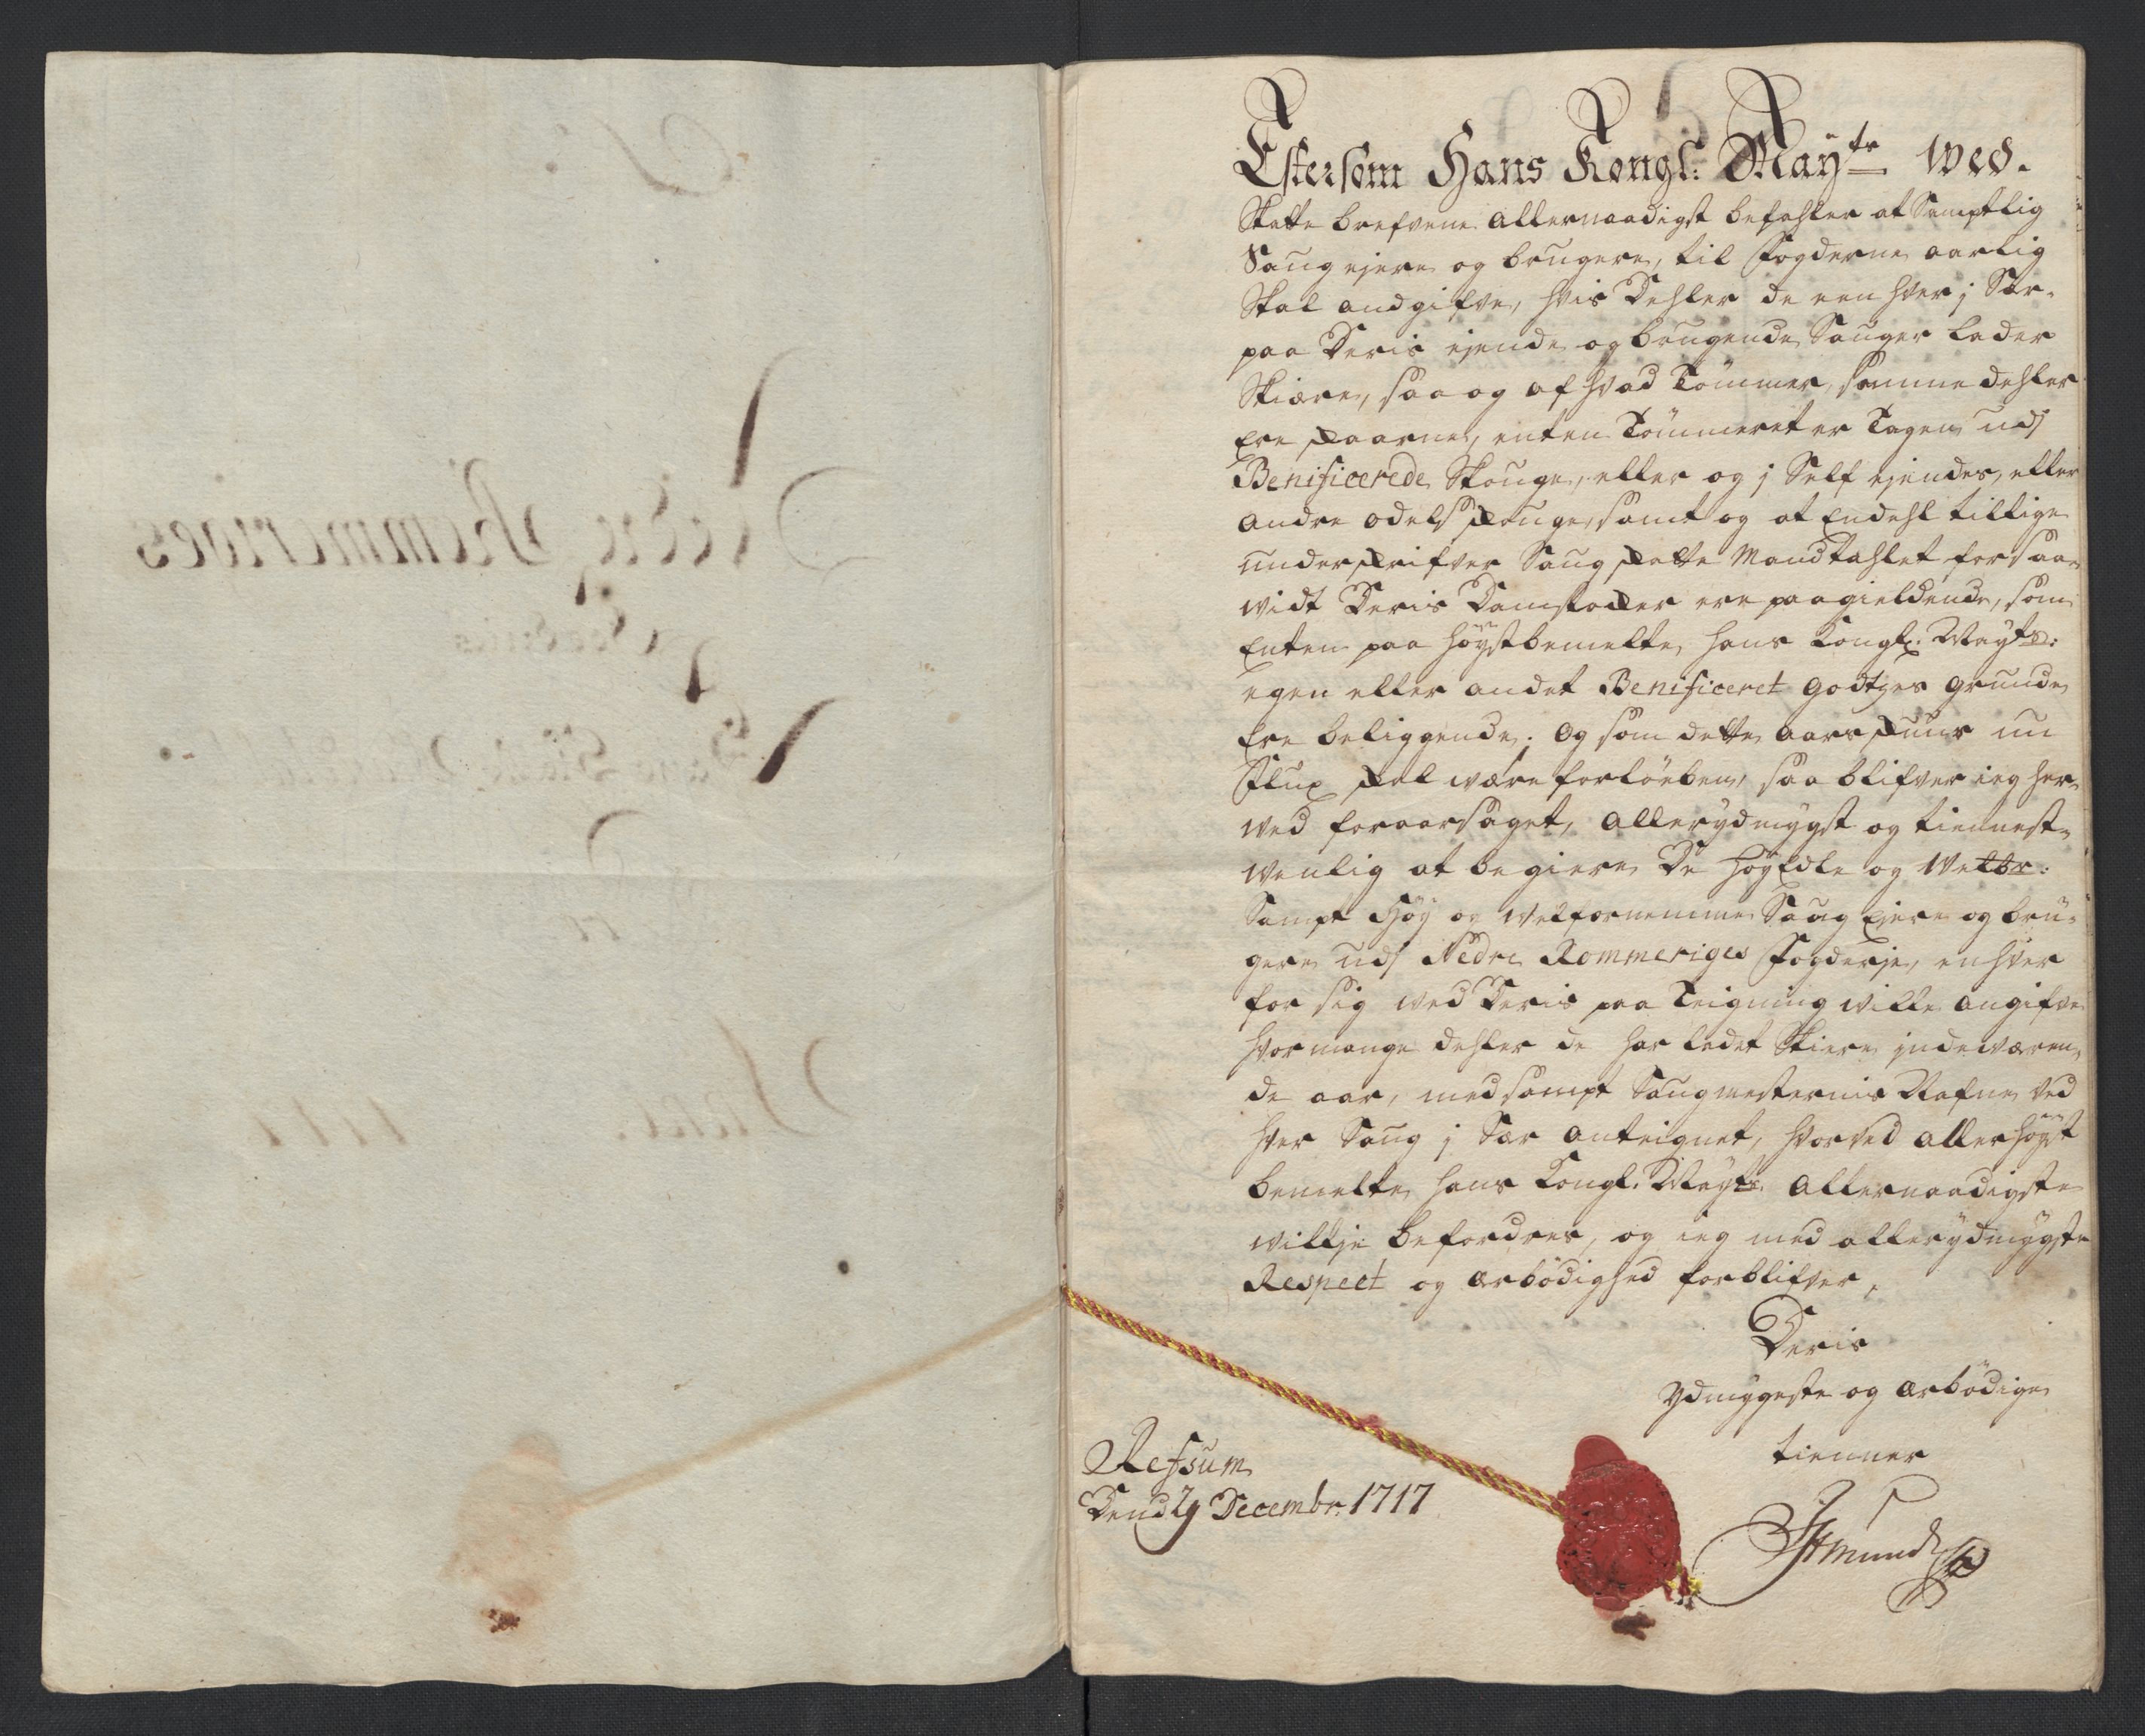 Eftersom Hans Kongl: Maÿtr wed.
Skatte brefvene allernaadigst befahler at Samptlig
Saug ejere og brugere, til Fogderne aarlig
Skal andgifve, hvis Dehler de een hver j Sær-
paa Deris ejende og brugende Sauger lader
Skiære, saa og af hvad Tömmer, samme dehler
ere skaarne, enten Tömmeret er Tagen udj
Benificerede Skouge, eller og j Self ejendes, eller
andre odels skouge, samt og at Endehl tillige
underskrifver Saug skatte Mandtahlet for saa-
vidt Deris Damstocker ere paagieldende, som
Enten paa höÿstbemelte, hans Kongl: Maÿts:
egen eller andet Benificeret godtzes grunde
ere beliggende. Og som dette aars skuur nu
Flux skal være forlöeben, saa blifver ieg her-
ved foraarsaget, allerydmÿgst og tiennest-
venlig at begiere De HöÿEdle og Velbr:
Sampt Höÿ og velfornemme Saug Ejere og bru-
gere udj Nedre Rommeriges Fogderje, en hver
for sig ved Deris paa Teigning ville angifve
hvor mange dehler de har ladet Skiere jndeværen-
de aar, med sampt Saugmesternis Nafne ved
hver Saug j Sær anteignet, hvorved allerhöÿst
bemelte hans Kongl. Maÿts allernaadigste
villje befordres, og ieg med allerydmÿgste
Respect og ærbödighed forblifver,
Deris
ydmÿgeste og ærbödige
tienner
Refsum
Dend 29 Decembr. 1717